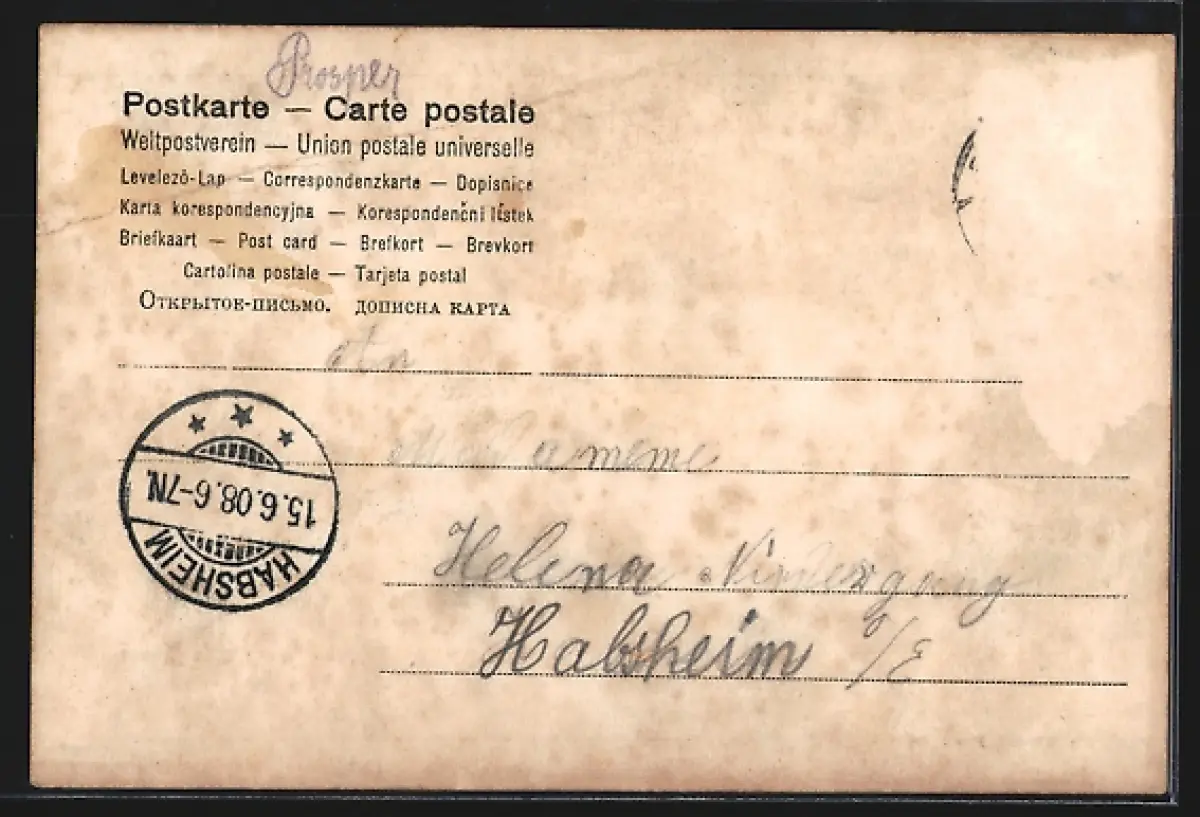 Prosper
Postkarte — Carte postale
Weltpostverein — Union postale universelle
Levelező-Lap — Correspondenzkarte — Dopisnice
Karta korespondencyjna — Korespondenční lístek
Briefkaart — Post card — Brefkort — Brevkort
Cartolina postale — Tarjeta postal
Открытое-письмо. дописна карта
An
Helena
Habsheim i/E
15.6.08.6-7N.
HABSHEIM